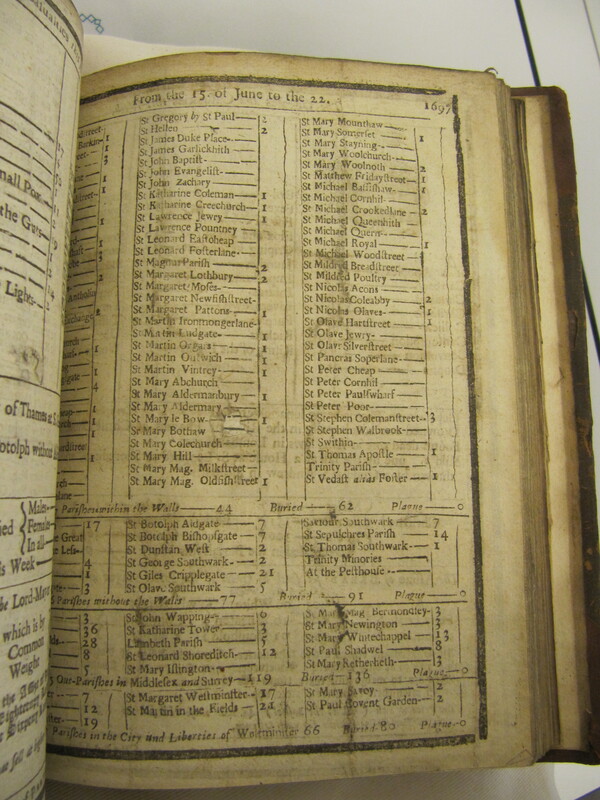 From the 15. of June to the 22. 1697
St Gregory by St Paul— 2
St Hellen — 2
St James Duke Place—
St James Garlickhith
St John Baptist—
St John Evangelist—
St John Zachary
St Katharine Coleman— 1
St Katharine Creechurch— 1
St Lawrence Jewry— 1
St Lawrence Pountney
St Leonard Eastcheap
St Leonard Fosterlane—
St Magnus Parish — 2
St Margaret Lothbury— 2
St Margaret Moses—
St Margaret Newfishstreet-
St Margaret Pattons— 1
St Martin Ironmongerlane-
St Martin Ludgate— 1
St Martin Orgars— 1
St Martin Outwich — 1
St Martin Vintrey— 1
St Mary Abchurch
St Mary Aldermanbury 1
St Mary Aldermary
St Mary le Bow— 1
St Mary Bothaw
St Mary Colechurch
St Mary Hill— 1
St Mary Mag. Milkstreet-
St Mary Mag. Oldfishstreet 1
St Mary Mounthaw
St Mary Somerset 1
St Mary Stayning—
St Mary Woolchurch
St Mary Woolnoth 2
St Matthew Fridaystreet 1
St Michael Bassishaw 1
St Michael Cornhil—
St Michael Crookedlane 2
St Michael Queenhith
St Michael Quern—
St Michael Royal 1
St Michael Woodstreet
St Mildred Breadstreet
St Mildred Poultry
St Nicolas Acons
St Nicolas Coleabby 2
St Nicolas Olaves— 1
St Olave Hartstreet 1
St Olave Jewry—
St Olave Silverstreet
St Pancras Soperlane
St Peter Cheap
St Peter Cornhil
St Peter Paulswharf
St Peter Poor—
St Stephen Colemanstreet- 3
St Stephen Walbrook—
St Swithin—
St Thomas Apostle 1
Trinity Parish—
St Vedast alias Foster 1
Parishes within the Walls — 44 Buried — 62 Plague — 0
17
4
1
3
St Botolph Aldgate 7
St Botolph Bishopsgate 7
St Dunstan West 2
St George Southwark— 2
St Giles Cripplegate 21
St Olave Southwark 5
Saviour Southwark 7
St Sepulchres Parish 14
St Thomas Southwark- 1
Trinity Minories
At the Pesthouse
Parishes without the Walls — 77 Buried — 91 Plague — 0
3
36
28
8
5
St John Wapping— 6
St Katharine Tower 3
Lambeth Parish 5
St Leonard Shoreditch— 12
St Mary Islington
St Mary Mag Bermondsey- 3
St Mary Newington 3
St Mary Whitechappel 13
St Paul Shadwel 8
St Mary Rotherhith 3
Out-Parishes in Middlesex and Surrey — 119 Buried 136 Plague — 0
7
12
19
St Margaret Westminster- 17
St Martin in the Fields 21
St Mary Savoy 2
St Paul Covent Garden- 2
Parishes in the City and Liberties of Westminster 66 Buried 80 Plague-0
the Guts
Lights
of Thames
Botolph without
Males
Females
In all
Week
the Lord-Mayor
which is
Common
Weight